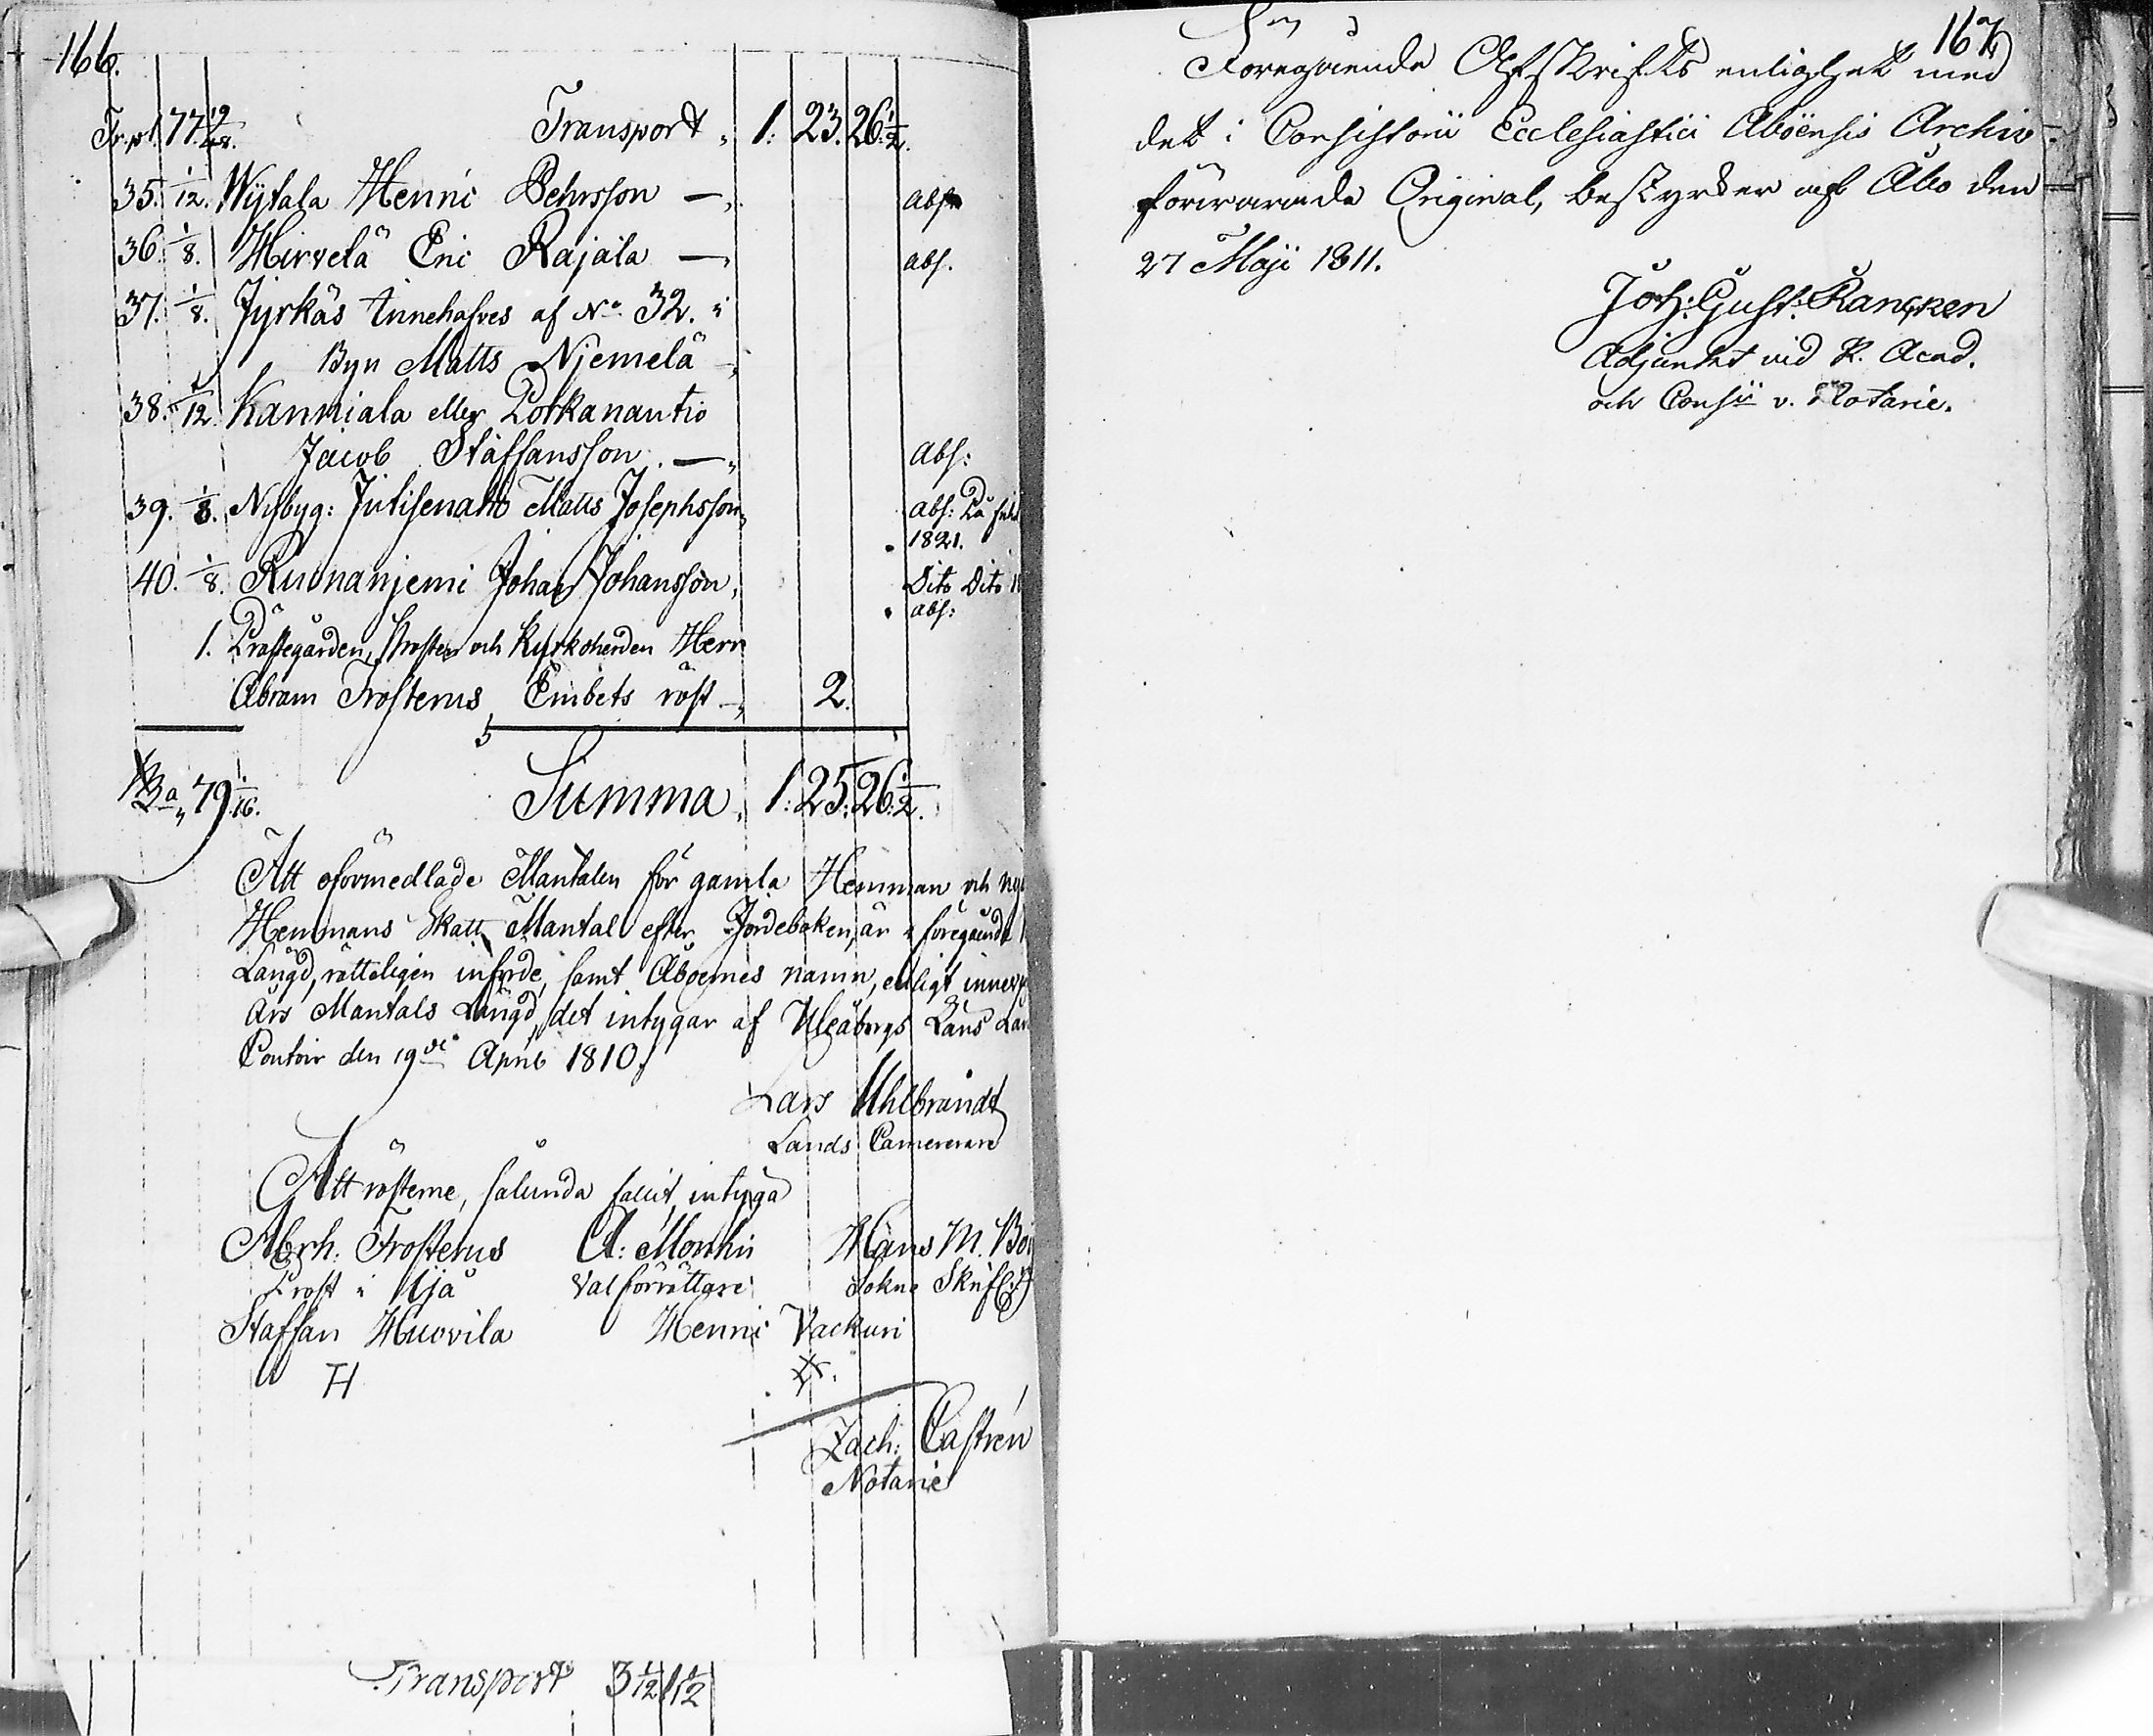 166.
Tr:pt 77. 19/48. Transport „ 1: 23. 26. 1/2.
35. 1/12. Wijtala Henric Pehrsson — abs:
36. 1/8. Hirvelä Eric Rajala — abs.
37. 1/8. Jyrkäs innehafves af No. 32. i
Byn Matts Njemelä —
38. 1/12. Kanniala eller Porkanautio
Jacob Staffansson. — Abs:
39. 1/8. Nybyg: Matts Josephsson abs: Då
1821.
40. 1/8. Ruonanjemi Johan Johansson, Dito Dito
abs:
1. Prästegården, Prosten och Kyrkoherden Herr
Abram Frosterus Embets röst — 2.
79. 1/16. Summa. 1: 25. 26. 1/2.
Att oförmedlade Mantalen för gamla Hemman och
Hemmans Skatt Mantal efter Jordeboken, är i föregående
Längd, rätteligen införde, samt Åboernes namn, enligt
Års Mantals Längd, det intygar af Uleåborgs Läns
Contoir den 19de April 1810.
Lars Uhlbrandt
Lands Camererare
Att rösterne, sålunda fallit, intyga
Abrh. Frosterus A: Monthin Hans M.
Prost i Ijå Valförrättare Sokne
Staffan Huovila Henric Vackuri
H
Zach: Castrén
Notarie
Transport 3 1/12
167
Föregående Afskrifts enlighet med
det i Consistorii Ecclesiastici Aboënsis Archiv
förvarade Original, bestyrker af Åbo den
27 Maji 1811.
Joh: Gust: Rancken
Adjunkt vid K. Acad.
och Consii v. Notarie.